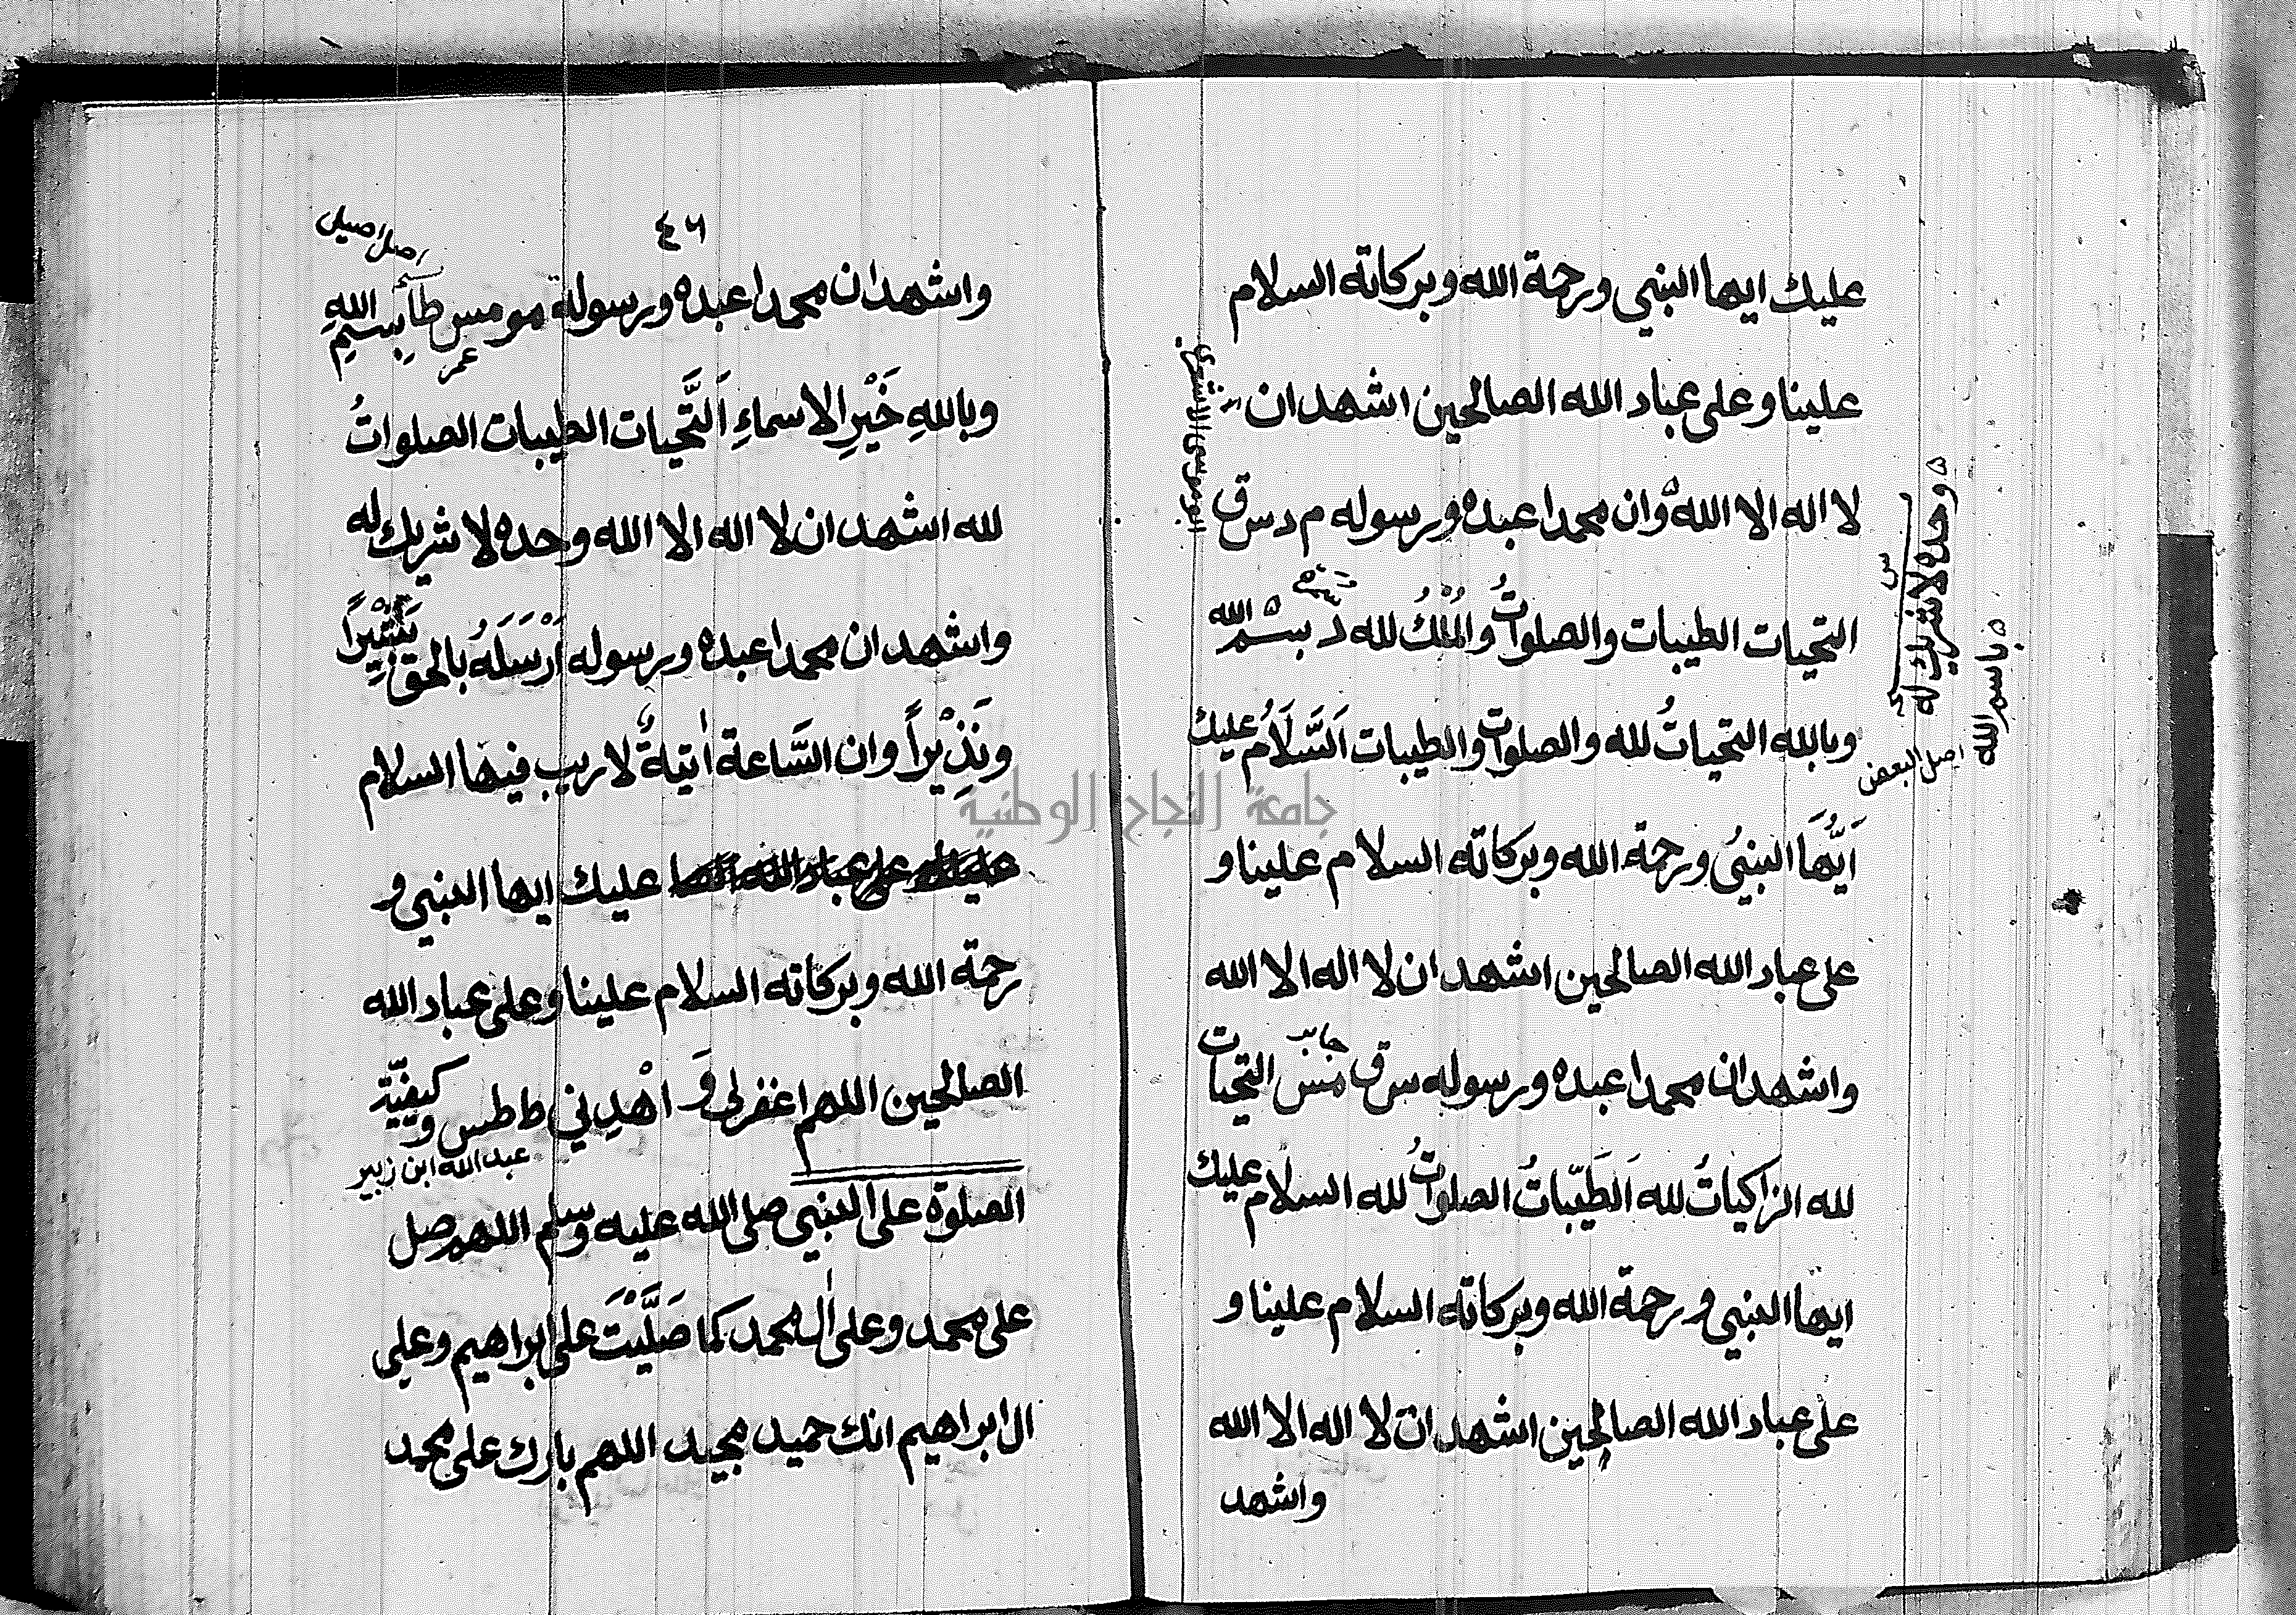 عليك ايها النبي ورحمة الله وبركاته السلام
علينا وعلى عباد الله الصالحين اشهد ان
ابو موسى الاشعري
لا اله الا الله وان محمدا عبده ورسوله م د س ق
وحده لا شريك له
س
باسم الله
التحيات الطيبات والصلواتُ والمُلْكُ لله د بسم الله
وبالله التحياتُ لله والصلوات والطيبات اَلسَّلَامُ عليك
اصل البعض
اَيُّهَا النبيُ ورحمة الله وبركاته السلام علينا و
على عباد الله الصالحين اشهد ان لا اله الا الله
واشهد ان محمدا عبده ورسوله س ق مس التحيات
جابر
لله الزاكياتُ لله اَلطَيّباتُ الصلواتُ لله السلام عليك
ايها النبي ورحمة الله وبركاته السلام علينا و
على عباد الله الصالحين اشهد ان لا اله الا الله
واشهد
جامعة النجاح الوطنية
٤٦
اصل اصيل
واشهد ان محمدا عبده ورسوله مو مس طا بِسْمِ اللهِ
عمر
وباللهِ خَيْرِ الاسماءِ اَلتَّحيات الطيبات الصلواتُ
لله اشهد ان لا اله الا الله وحده لا شريك له
واشهد ان محمدا عبده ورسوله اَرْسَلَهُ بالحق بَشِيْراً
ونَذِيْراً وان السَّاعة اٰتيةٌ لا ريب فيها السلام
علينا وعلى عباد الله الصا عليك ايها النبي و
رحمة الله وبركاته السلام علينا وعلى عباد الله
الصالحين اللهم اغفرلي وَ اهْدِني ط طس وكيفيّة
عبد الله ابن زبير
الصلوة على النبي صلى الله عليه وسلم اللهم صل
على محمد وعلى اٰل محمد كما صَلَّيْتَ على ابراهيم وعلى
ال ابراهيم انك حميد مجيد اللهم بارك على محمد